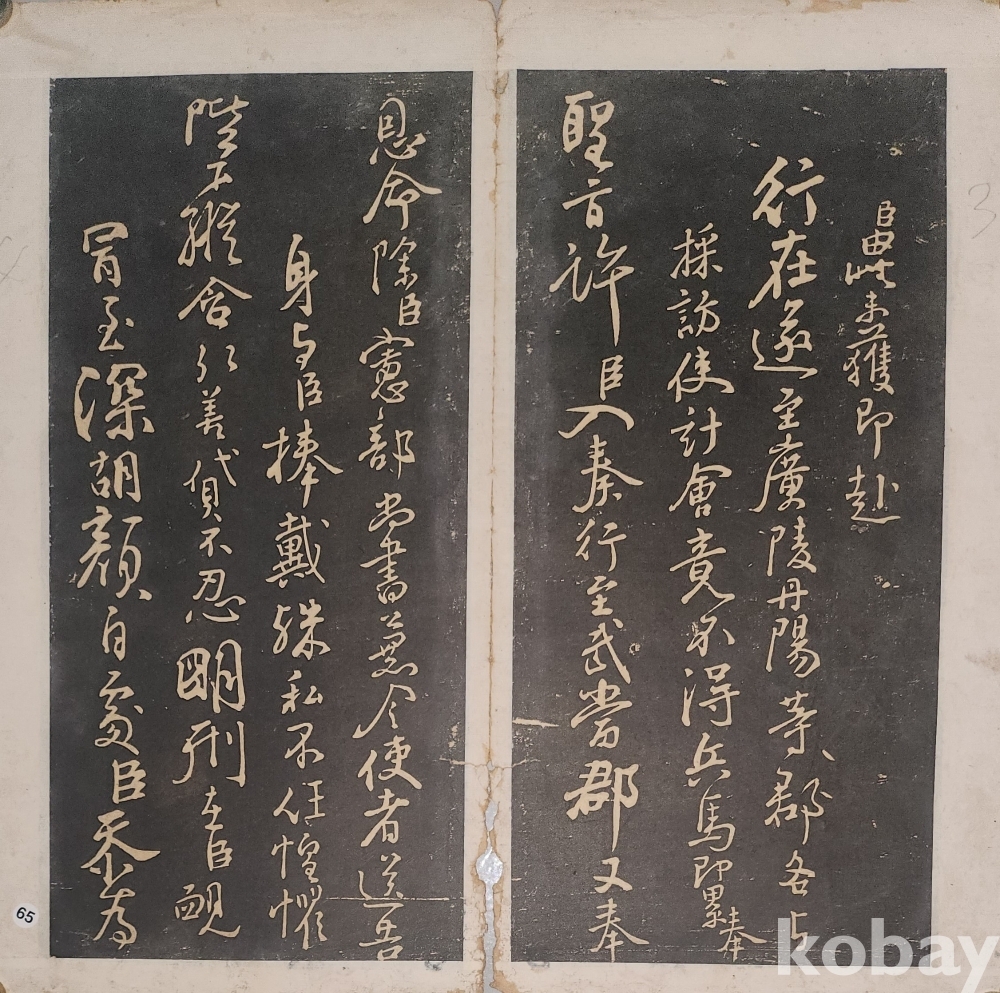 臣此未獲即赴
行在遂至廣陵丹陽等郡各与
採訪使計會竟不得兵馬即累奉
聖旨許臣入奏行至武當郡又奉
恩命除臣憲部尚書兼令使者送告
身与臣捧戴殊私不任惶懼
陛下縱含弘善貸不忍明刑在臣覥
冒至深胡顔自處臣忝為
65
kobay